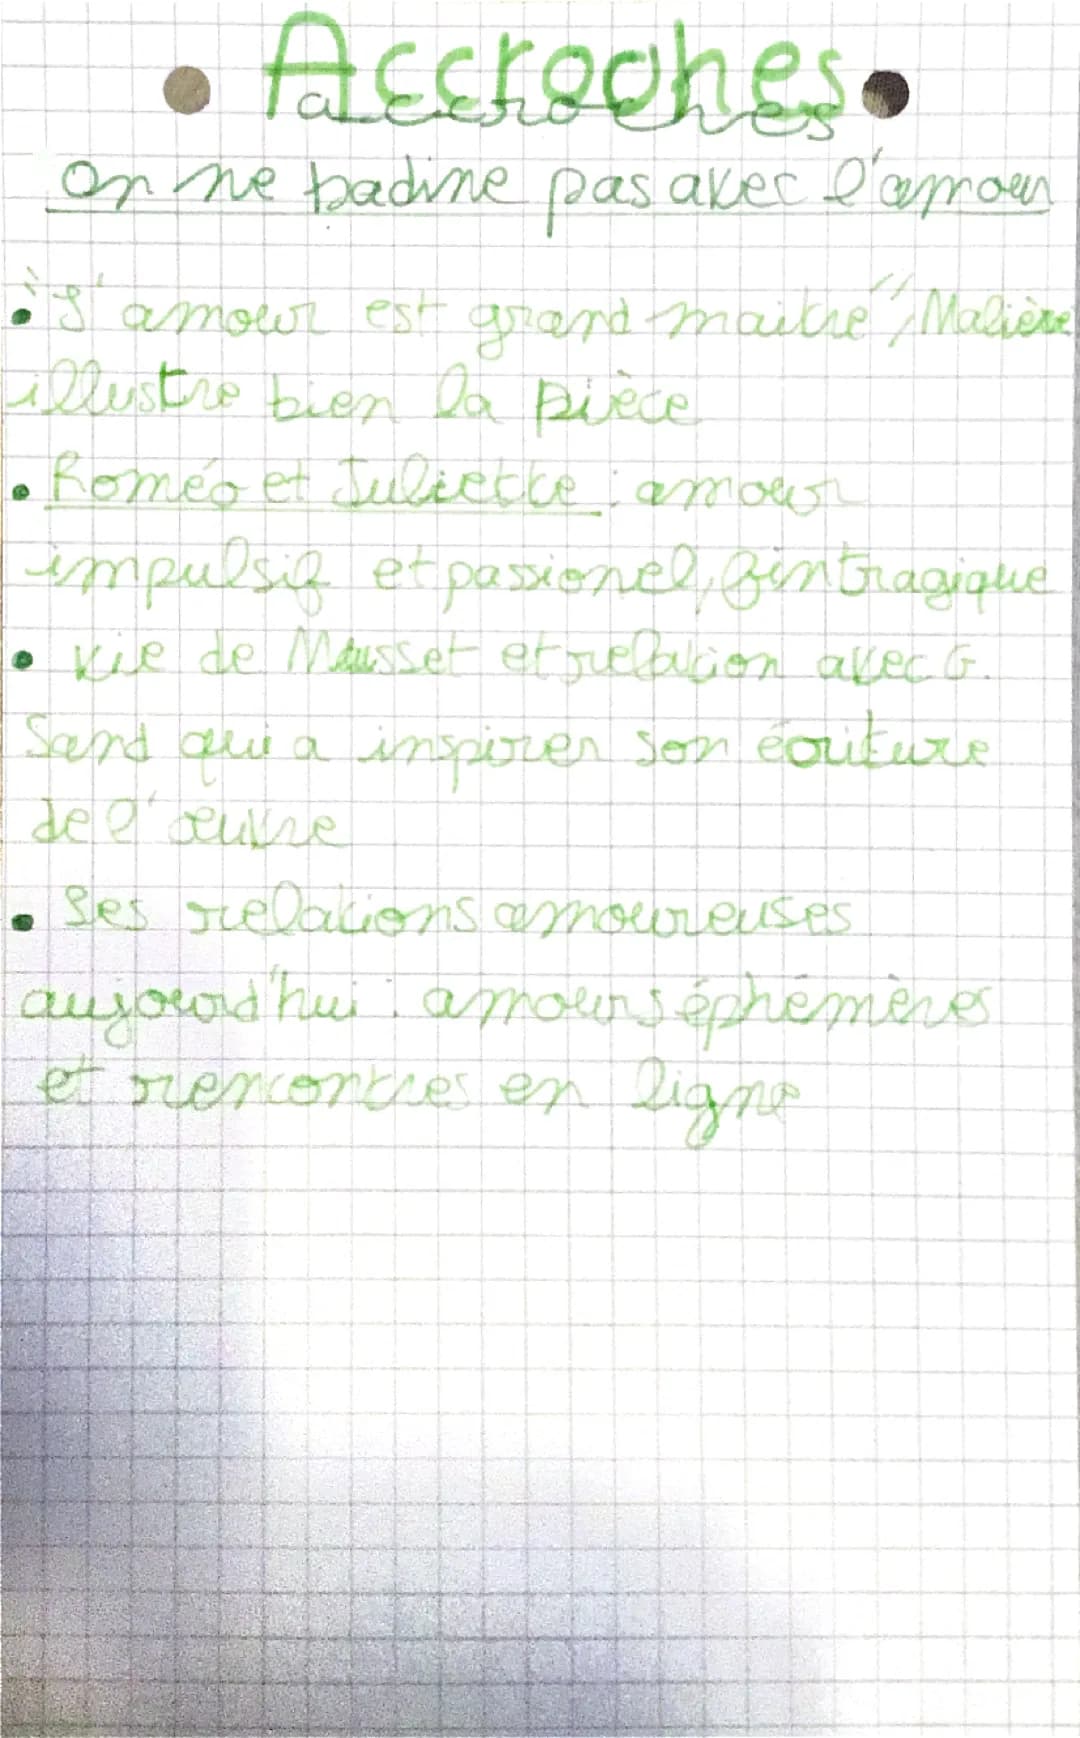 Accroches
accroches
on ne badine pas avec l'amour
• "L'amour est grand maitre", Molière
illustre bien la pièce
• Roméo et Juliette : amour
impulsif et passionel, fin tragique
• vie de Musset et relation avec G.
Sand qui a inspirer son écriture
de l'œuvre
• Les relations amoureuses
aujourd'hui : amours éphémères
et rencontres en ligne